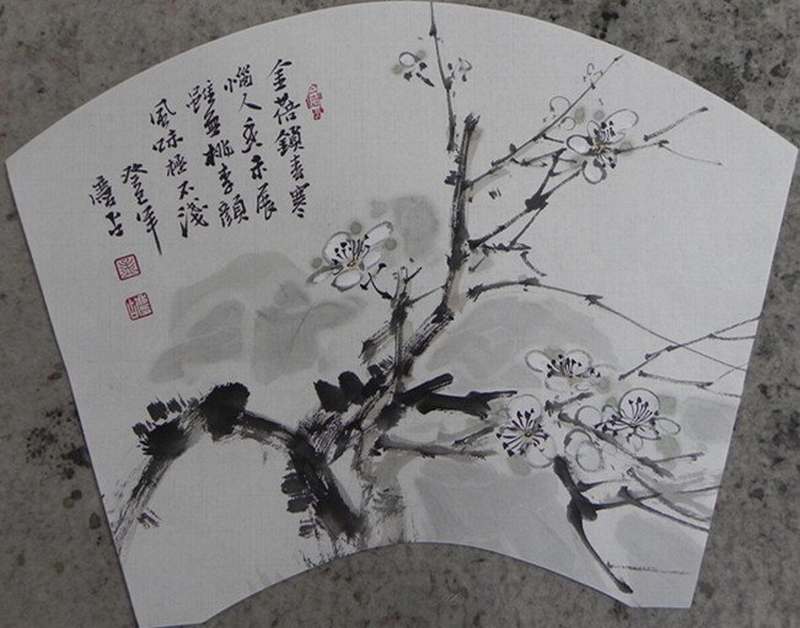 金蓓鎖春寒
惱人香未展
雖無桃李顏
風味極不淺
癸巳年